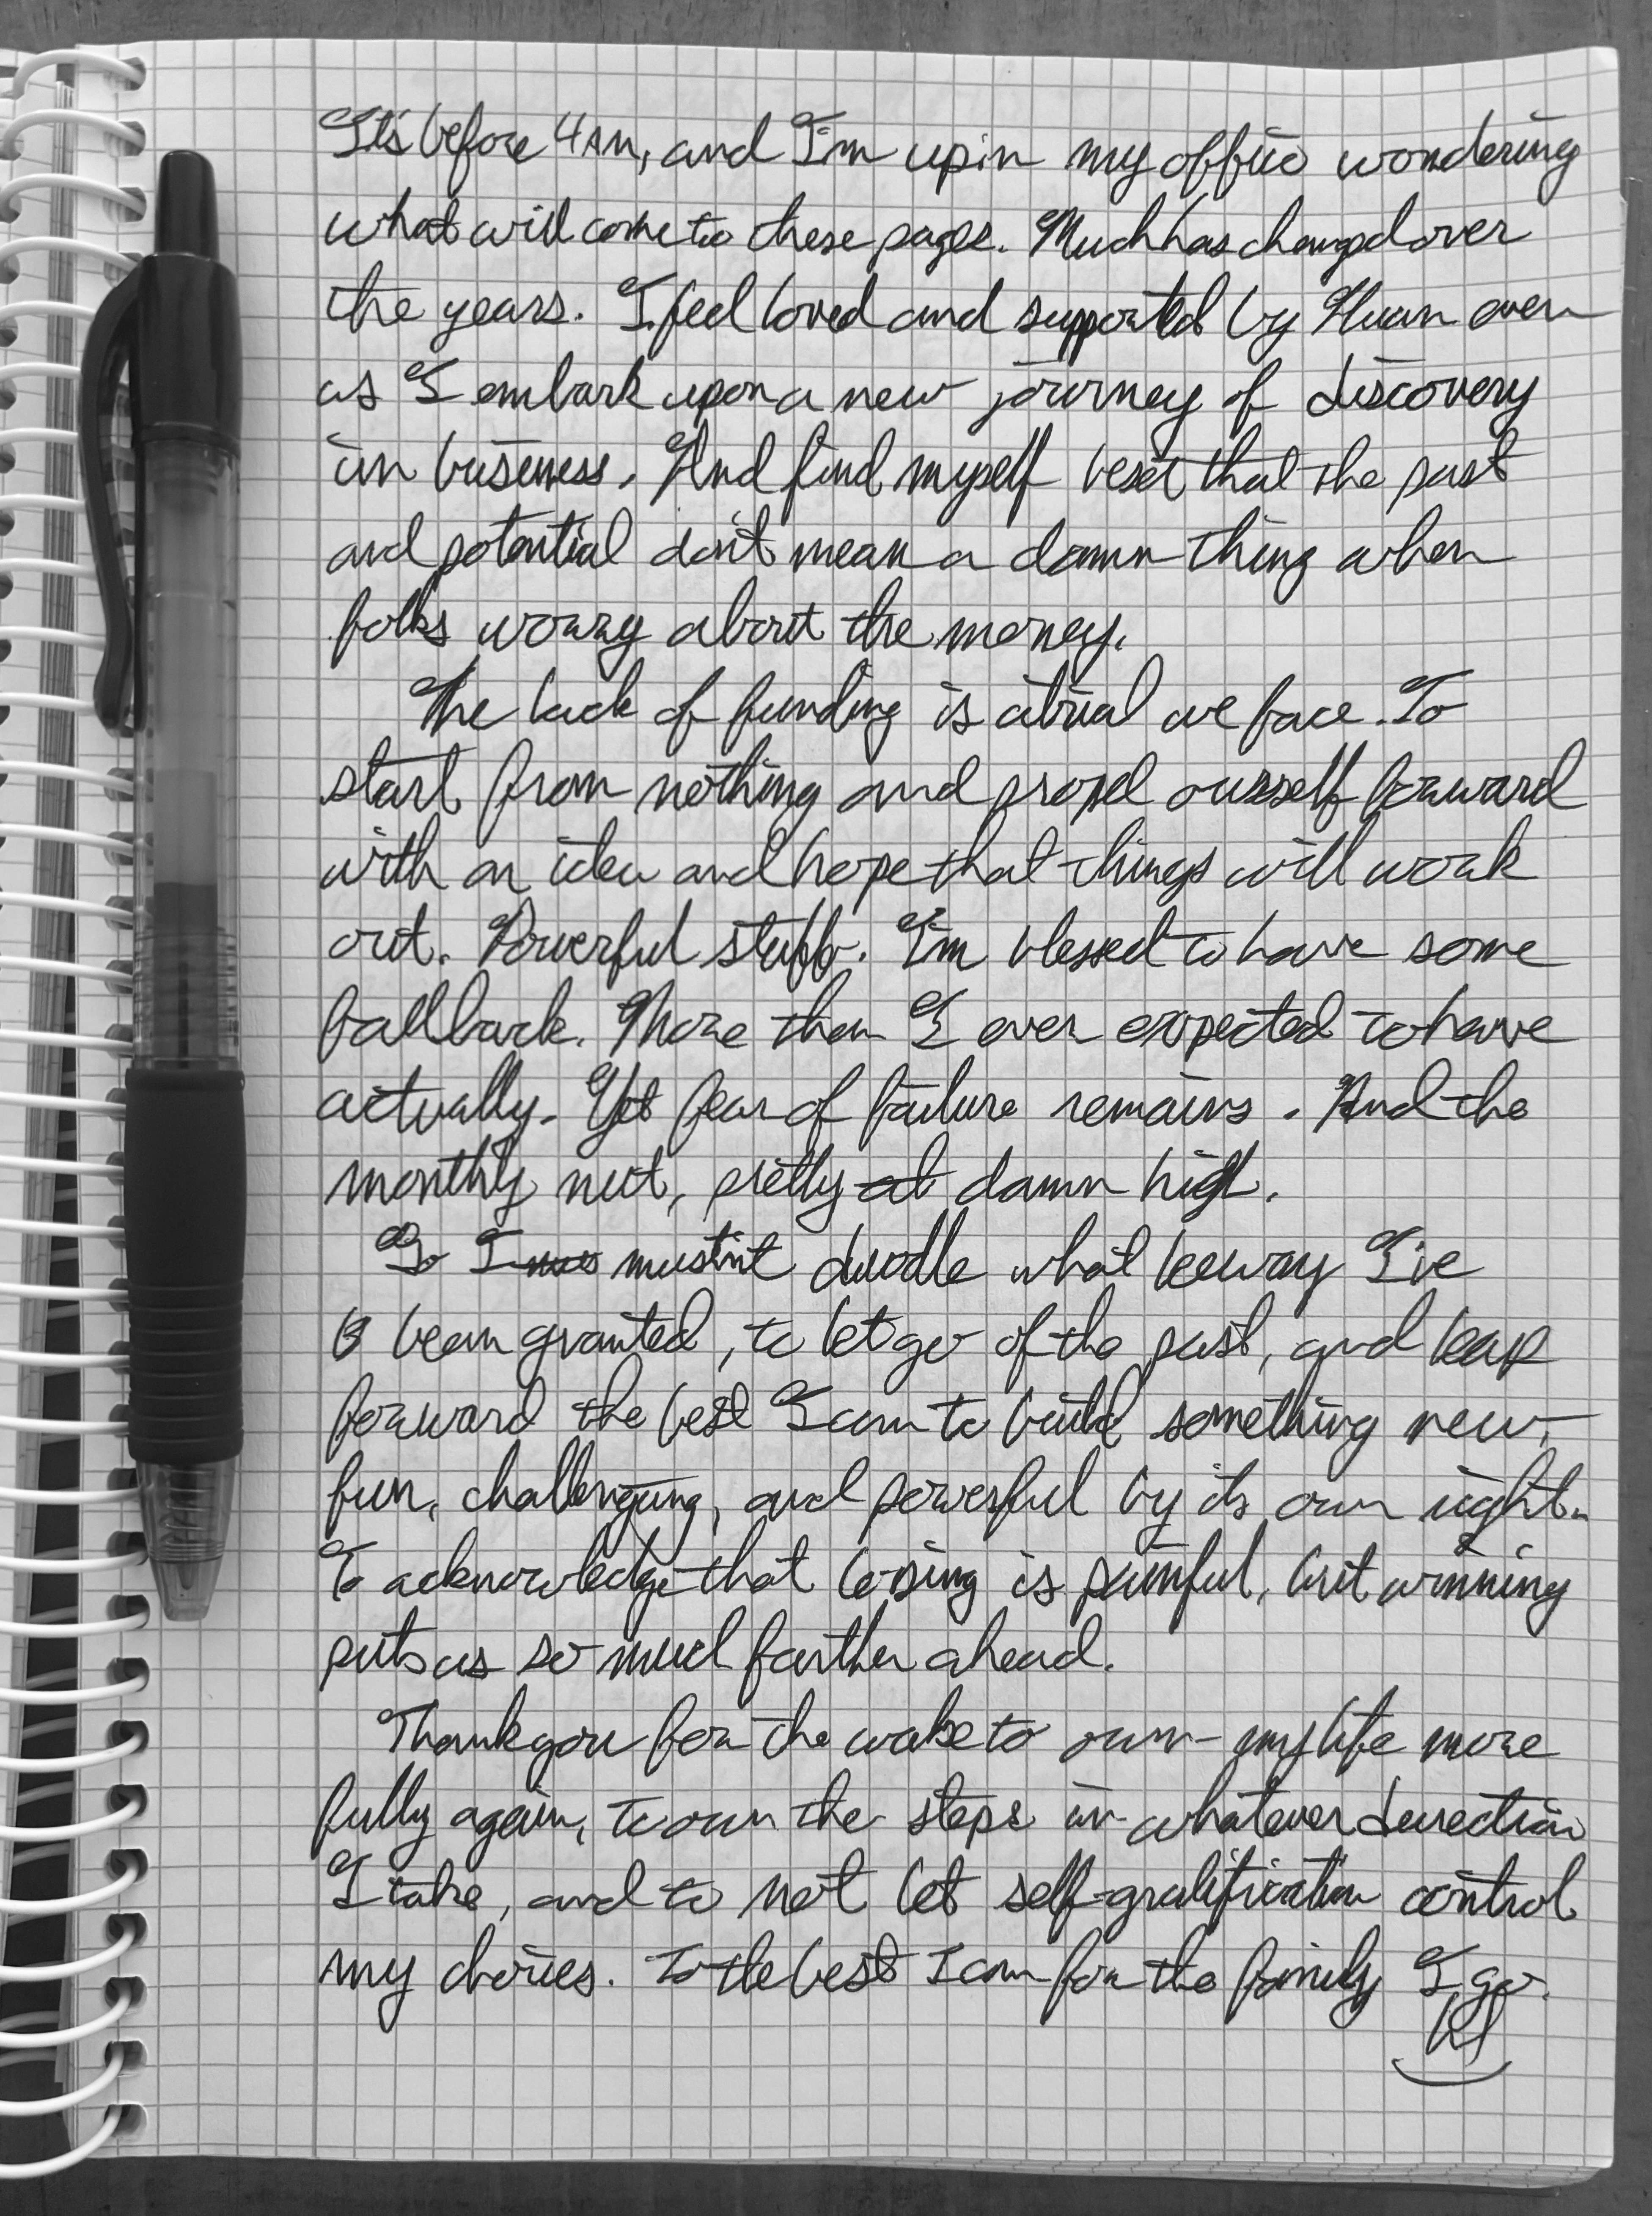 It's before 4AM, and I'm up in my office wondering
what will come to these pages. Much has changed over
the years. I feel loved and supported by even
as I embark upon a new journey of discovery
in business. And find myself beset that the past
and potential don't mean a damn thing when
folks worry about the money.
The lack of funding is a trial we face. To
start from nothing and propel ourself forward
with an idea and hope that things will work
out. Powerful stuff. I'm blessed to have some
fallback. More than I ever expected to have
actually. Yet fear of failure remains. And the
monthly nut, pretty at damn high.
So I mustn't dwodle what leeway I've
been granted, to let go of the past, and leap
forward the best I can to build something new,
fun, challenging, and powerful by its own right.
To acknowledge that losing is painful, but winning
puts us so much farther ahead.
Thank you for the wake to own my life more
fully again, to own the steps in whatever direction
I take, and to not let self-gratification control
my choices. To the best I can for the family I go.